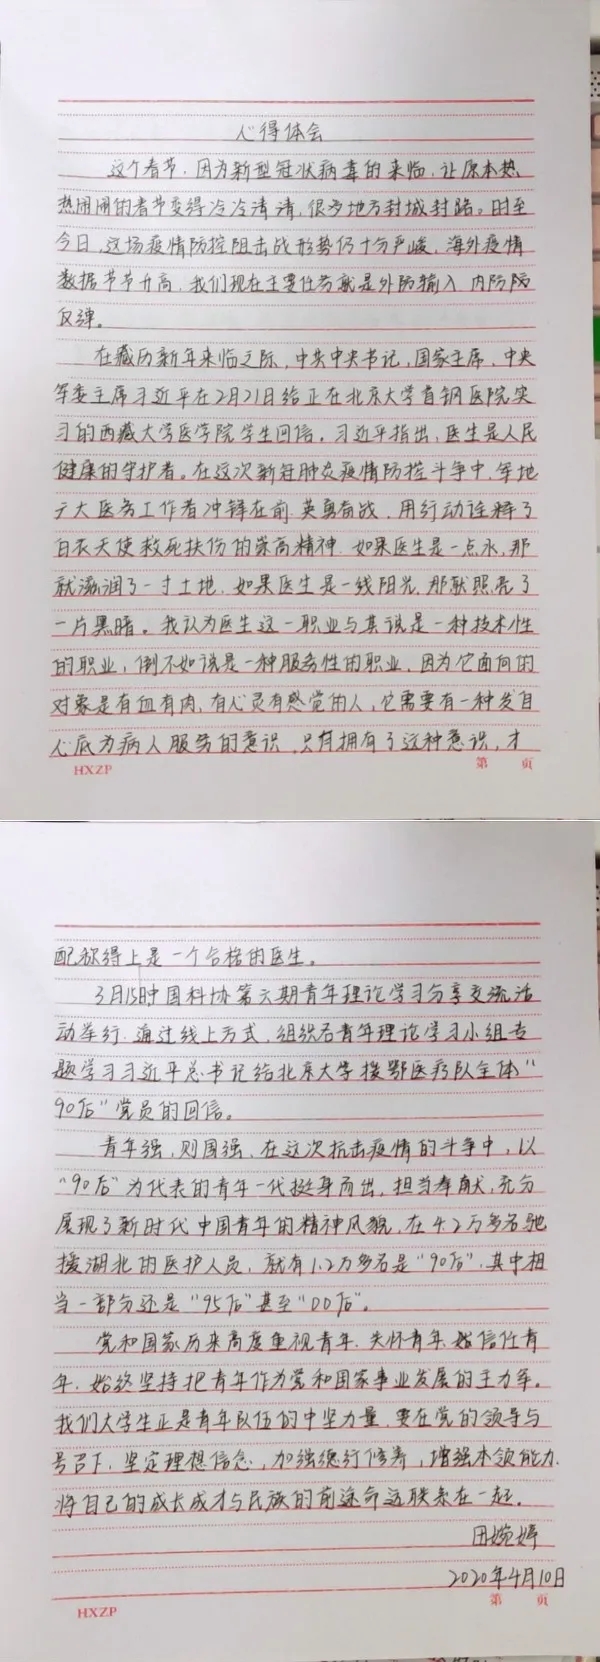 心得体会
这个春节，因为新型冠状病毒的来临，让原本热
热闹闹的春节变得冷冷清清，很多地方封城封路。时至
今日，这场疫情防控阻击战形势仍十分严峻，海外疫情
数据节节升高，我们现在主要任务就是外防输入 内防防
反弹。
在藏历新年来临之际，中共中央书记，国家主席，中央
军委主席习近平在2月21日给正在北京大学首钢医院实
习的西藏大学医学院学生回信。习近平指出，医生是人民
健康的守护者。在这次新冠肺炎疫情防控斗争中，军地
广大医务工作者冲锋在前，英勇奋战，用行动诠释了
白衣天使救死扶伤的崇高精神。如果医生是一点水，那
就滋润了一寸土地，如果医生是一线阳光，那就照亮了
一片黑暗。我认为医生这一职业与其说是一种技术性
的职业，倒不如说是一种服务性的职业，因为它面向的
对象是有血有肉，有心灵有感觉的人，它需要有一种发自
心底为病人服务的意识，只有拥有了这种意识，才
HXZP
第 页
配称得上是一个合格的医生。
3月15日中国科协第六期青年理论学习分享交流活
动举行，通过线上方式，组织各青年理论学习小组专
题学习习近平总书记给北京大学援鄂医疗队全体“
90后”党员的回信。
青年强，则国强，在这次抗击疫情的斗争中，以
“90后”为代表的青年一代挺身而出，担当奉献，充分
展现了新时代中国青年的精神风貌，在4.2万多名驰
援湖北的医护人员，就有1.2万多名是“90后”，其中相
当一部分还是“95后”甚至“00后”。
党和国家历来高度重视青年，关怀青年，信任青
年，始终坚持把青年作为党和国家事业发展的主力军。
我们大学生正是青年队伍的中坚力量，要在党的领导与
号召下，坚定理想信念，加强德行修养，增强本领能力，
将自己的成长成才与民族的前途命运联系在一起。
田婉婷
2020年4月10日
HXZP
第 页